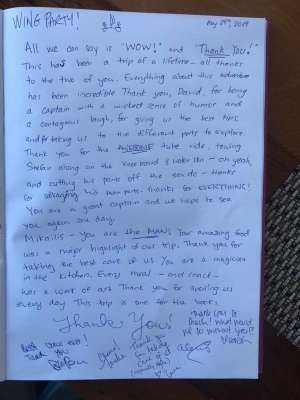 WING PARTY!
May 29th, 2019
All we can say is "WOW!" and "Thank You!"
This has been a trip of a lifetime - all thanks
to the two of you. Everything about this adventure
has been incredible. Thank you, David, for being
a captain with a wicked sense of humor and
a contagious laugh, for giving us the best
and for taking us to the different ports to explore.
Thank you for the AWESOME tube ride, towing
Stefan along on the kneeboard & wake skis - oh yeah,
and cutting his pants off the - thanks
for his pants. Thanks for EVERYTHING!
You are a great captain and we hope to see
you again one day.
Mikailis - you are the MAN! Your amazing food
was a major highlight of our trip. Thank you for
taking the best care of us. You are a magician
in the kitchen. Every meal - and snack -
was a work of art. Thank you for spoiling us
every day. This trip is one for the books.
Thank You!
Best
ever!
Thank you
for taking
care of us
Thank you so
much! What would
we do without you!?